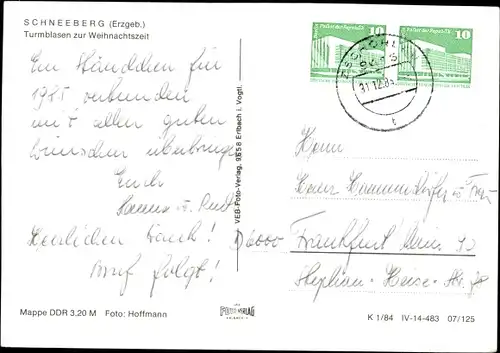 SCHNEEBERG (Erzgeb.)
Turmblasen zur Weihnachtszeit
Ein Ständchen für
1985, verbunden
mit allen guten
Wünschen überbringt
Euch
Hanna u. Rudi
Herzlichen Dank!
Brief folgt!
Mappe DDR 3,20 M Foto: Hoffmann
VEB-Foto-Verlag, 9658 Erlbach i. Vogtl.
FOTO VERLAG
ERLBACH
10 Palast der Republik
Palast der Republik 10
31.12.84
t
Herrn
Heinz u. Frau
D 6000 Frankfurt Main
Stephan-Heise-Str.
K 1/84 IV-14-483 07/125